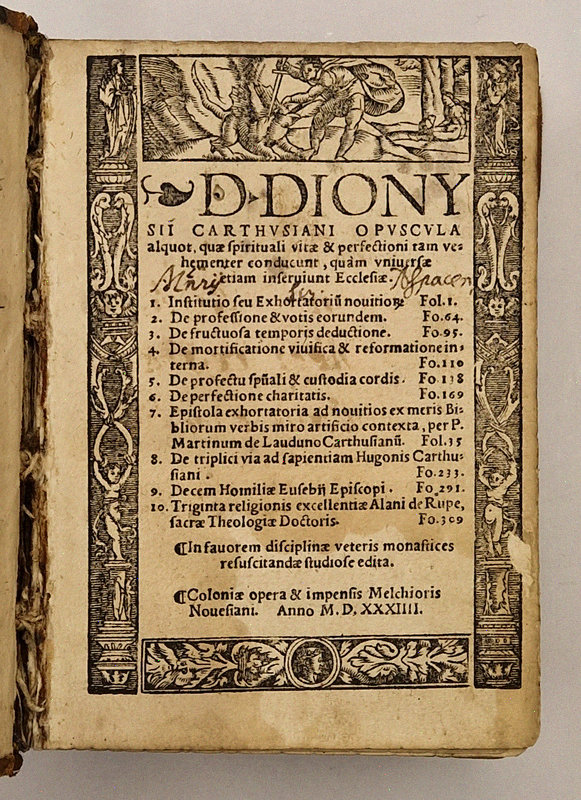 D. DIONY
SII CARTHVSIANI OPVSCVLA
alquot, quæ spirituali vitæ & perfectioni tam ve-
hementer conducunt, quàm vniuersæ
etiam inseruiunt Ecclesiæ.
1. Institutio seu Exhortatoriū nouitiorꝫ Fol.1.
2. De professione & votis eorundem. Fo.64.
3. De fructuosa temporis deductione. Fo.95.
4. De mortificatione viuifica & reformatione in-
terna. Fo.110
5. De profectu spūali & custodia cordis. Fo.138
6. De perfectione charitatis. Fo.169
7. Epistola exhortatoria ad nouitios ex meris Bi-
bliorum verbis miro artificio contexta, per P.
Martinum de Lauduno Carthusianū. Fol.35
8. De triplici via ad sapientiam Hugonis Carthu-
siani. Fo.233.
9. Decem Homiliæ Eusebij Episcopi. Fo.291.
10. Triginta religionis excellentiæ Alani de Rupe,
sacræ Theologiæ Doctoris. Fo.309
¶In fauorem disciplinæ veteris monastices
resuscitandæ studiose edita.
¶Coloniæ opera & impensis Melchioris
Nouesiani. Anno M. D, XXXIIII.